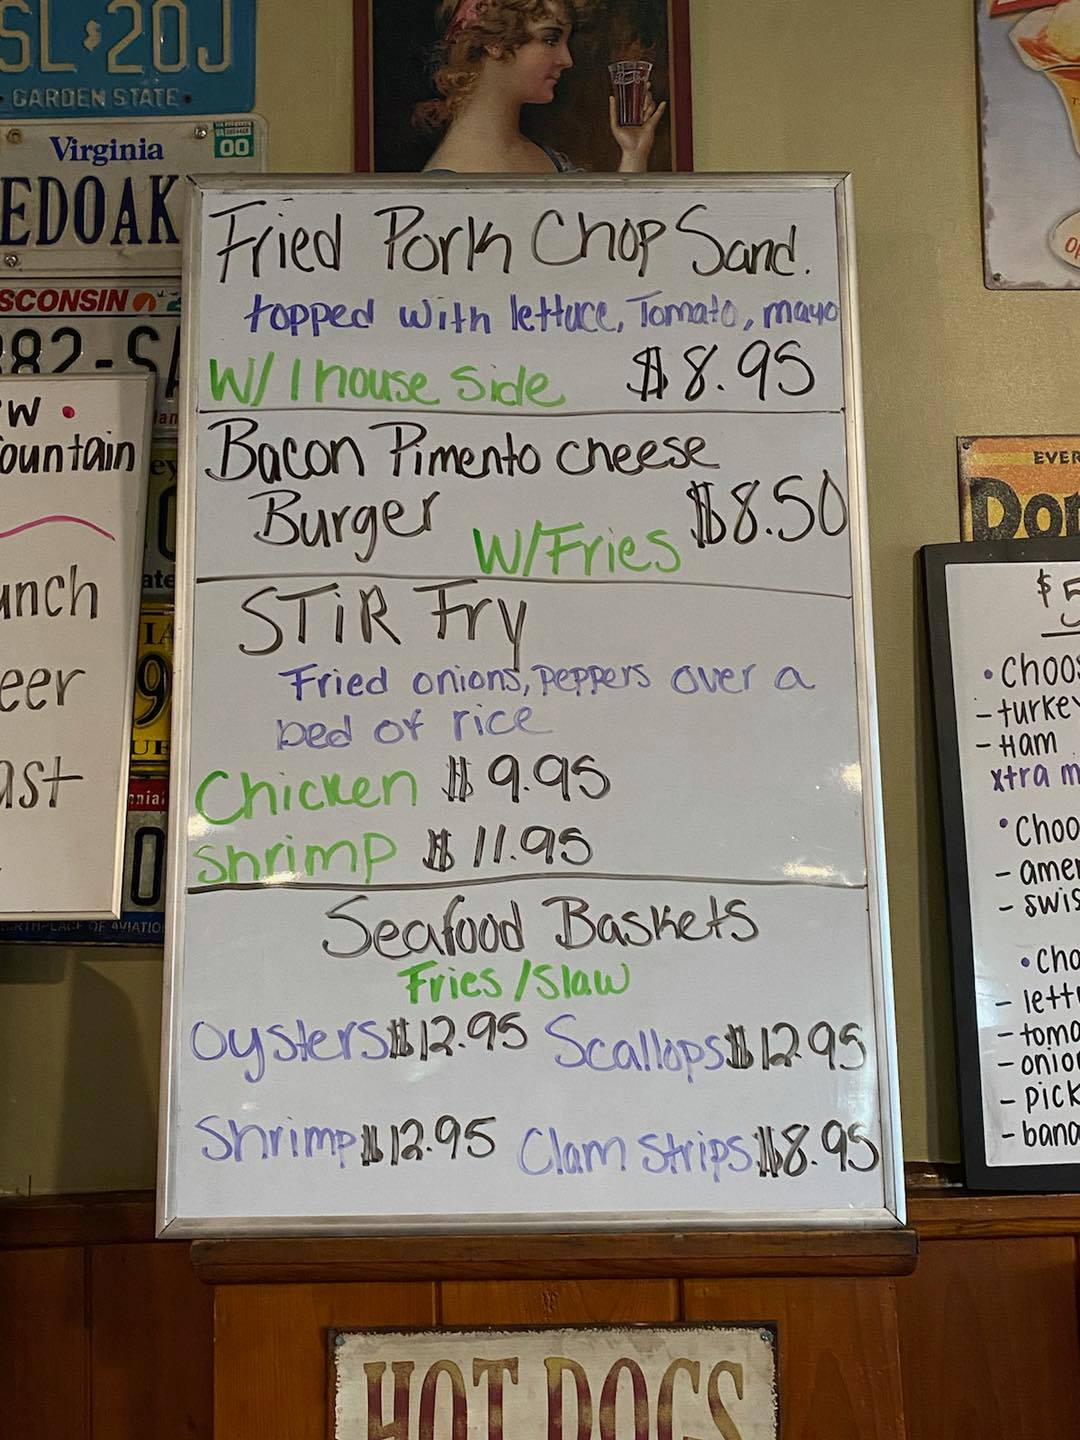 GARDEN STATE
Virginia
00
EDOAK
Fried Pork Chop Sand.
topped with lettuce, Tomato, mayo
W/ 1 house side $8.95
Bacon Pimento cheese
Burger W/Fries $8.50
STiR Fry
Fried onions, peppers over a
bed of rice
Chicken $9.95
Shrimp $11.95
Seafood Baskets
Fries/Slaw
Oysters $12.95 Scallops $12.95
Shrimp $12.95 Clam strips $8.95
HOT DOGS
SCONSIN
382-SA
ew
ountain
unch
eer
ast
EVER
Dou
$5
• Choos
- turkey
- Ham
xtra m
• Choo
- amer
- swis
• cho
- lettu
- toma
- onion
- pick
- bana